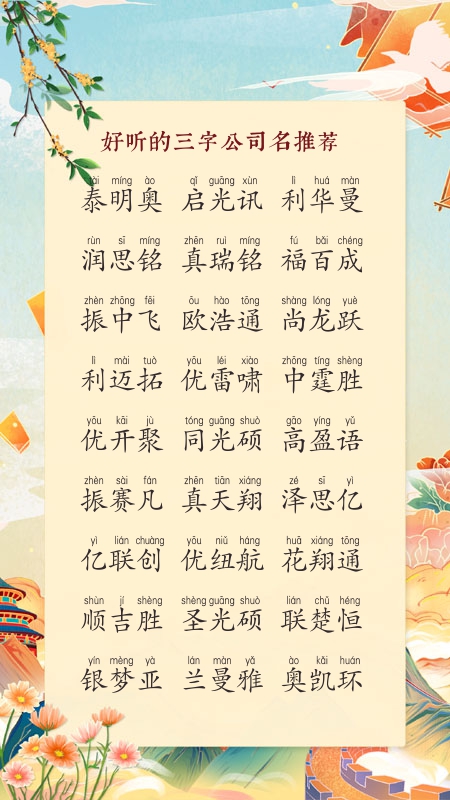 好听的三字公司名推荐
tài míng ào qǐ guāng xùn lì huá màn
泰明奥 启光讯 利华曼
rùn sī míng zhēn ruì míng fú bǎi chéng
润思铭 真瑞铭 福百成
zhèn zhōng fēi ōu hào tōng shàng lóng yuè
振中飞 欧浩通 尚龙跃
lì mài tuò yōu léi xiào zhōng tíng shèng
利迈拓 优雷啸 中霆胜
yōu kāi jù tóng guāng shuò gāo yíng yǔ
优开聚 同光硕 高盈语
zhèn sài fán zhēn tiān xiáng zé sī yì
振赛凡 真天翔 泽思亿
yì lián chuàng yōu niǔ háng huā xiáng tōng
亿联创 优纽航 花翔通
shùn jí shèng shèng guāng shuò lián chǔ héng
顺吉胜 圣光硕 联楚恒
yín mèng yà lán màn yǎ ào kǎi huán
银梦亚 兰曼雅 奥凯环